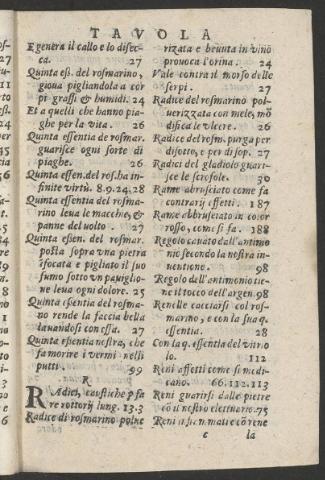 TAVOLA
E genera il callo e lo disec-
ca. 27
Quinta ess. del rosmarino,
gioua pigliandola a cor
pi grassi & humidi. 24
Et a quelli che hanno pia-
ghe per la vita. 26
Quinta essentia de rosmar.
guarisce ogni sorte di
piaghe. 26
Quinta essen. del ros. ha in-
finite virtù. 8.9.24.28
Quinta essentia del rosma-
rino leua le macchie, &
panne del uolto. 27
Quinta essen. del rosmar.
posta sopra vna pietra
afocata e pigliato il suo
fumo sotto vn pauiglio-
ne leua ogni dolore. 25
Quinta essentia del rosma-
no rende la faccia bella
lauandosi con essa. 27
Quinta essentia nostra, che
fa morire i vermi nelli
putti. 99
R
RAdici, caustiche p fa
re rottorij lung. 13.3
Radice di rosmarino polue
rizata e beuuta in vino
prouoca l'orina. 24
Vale contra il morso delle
serpi. 27
Radice del rosmarino pol-
uerizzata con mele, mò
difica le vlcere. 26
Radice del rosm. purga per
disotto, e per di sop. 27
Radici del gladiolo guari-
sce le scrofole. 30
Rame abrusciato come fa
contrarij effetti. 187
Rame abbrusciato in color
rosso, come si fa. 188
Regolo cauato dall'antimo
nio secondo la nostra in-
uentione. 98
Regolo dell'antimonio tie-
ne il tocco dell'argen. 98
Renelle cacciarsi col ros-
marino, e con la sua q.
essentia. 28
Con la q. essentia del vitrio
lo. 112
Reni affetti come si medi-
cano. 66.112.113
Reni guarirsi dalle pietre
cō il nostro elettuario. 75
Reni
c la